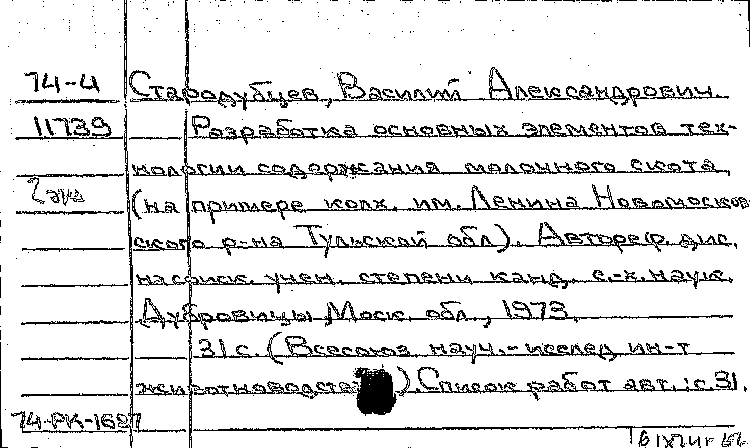 74-4 Стародубцев, Василий Александрович.
11739 Разработка основных элементов тех-
нологии содержания молочного скота
2 экз (на примере колх. им. Ленина Новомосков-
ского р-на Тульской обл). Автореф. дис.
на соиск. учен. степени канд. с.-х. наук.
Дубровицы Моск. обл., 1973.
31 с. (Всесоюз науч.-исслед ин-т
животноводства). Список работ авт.: с.31.
74-РК-1687